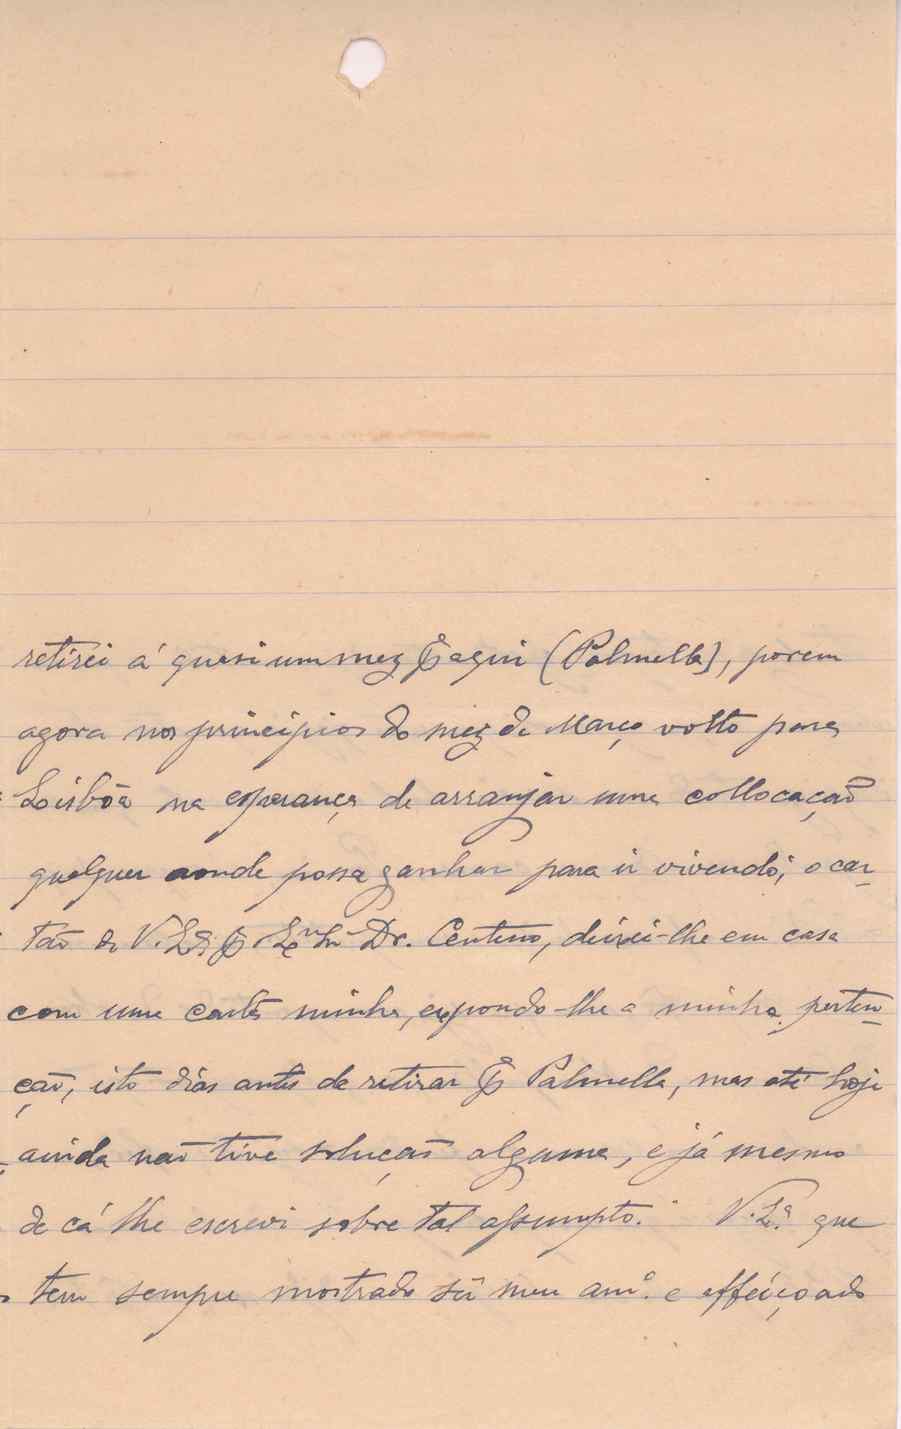 retirei á quasi um mez pª aqui (Palmella), porem
agora nos principios do mez de Março volto para
Lisbôa na esperança de arranjar uma collocação
qualquer aonde possa ganhar para ir vivendo; o car-
tão de V. Exª pª Exmo Snr Dr. Centeno, deixei-lhe em casa
com uma carta minha, expondo-lhe a minha perten-
ção, isto dias antes de retirar pª Palmella, mas até hoje
ainda não tive solução alguma, e já mesmo
de cá lhe escrevi sobre tal assumpto. V. Exª que
tem sempre mostrado sêr meu amº. e affeiçoado